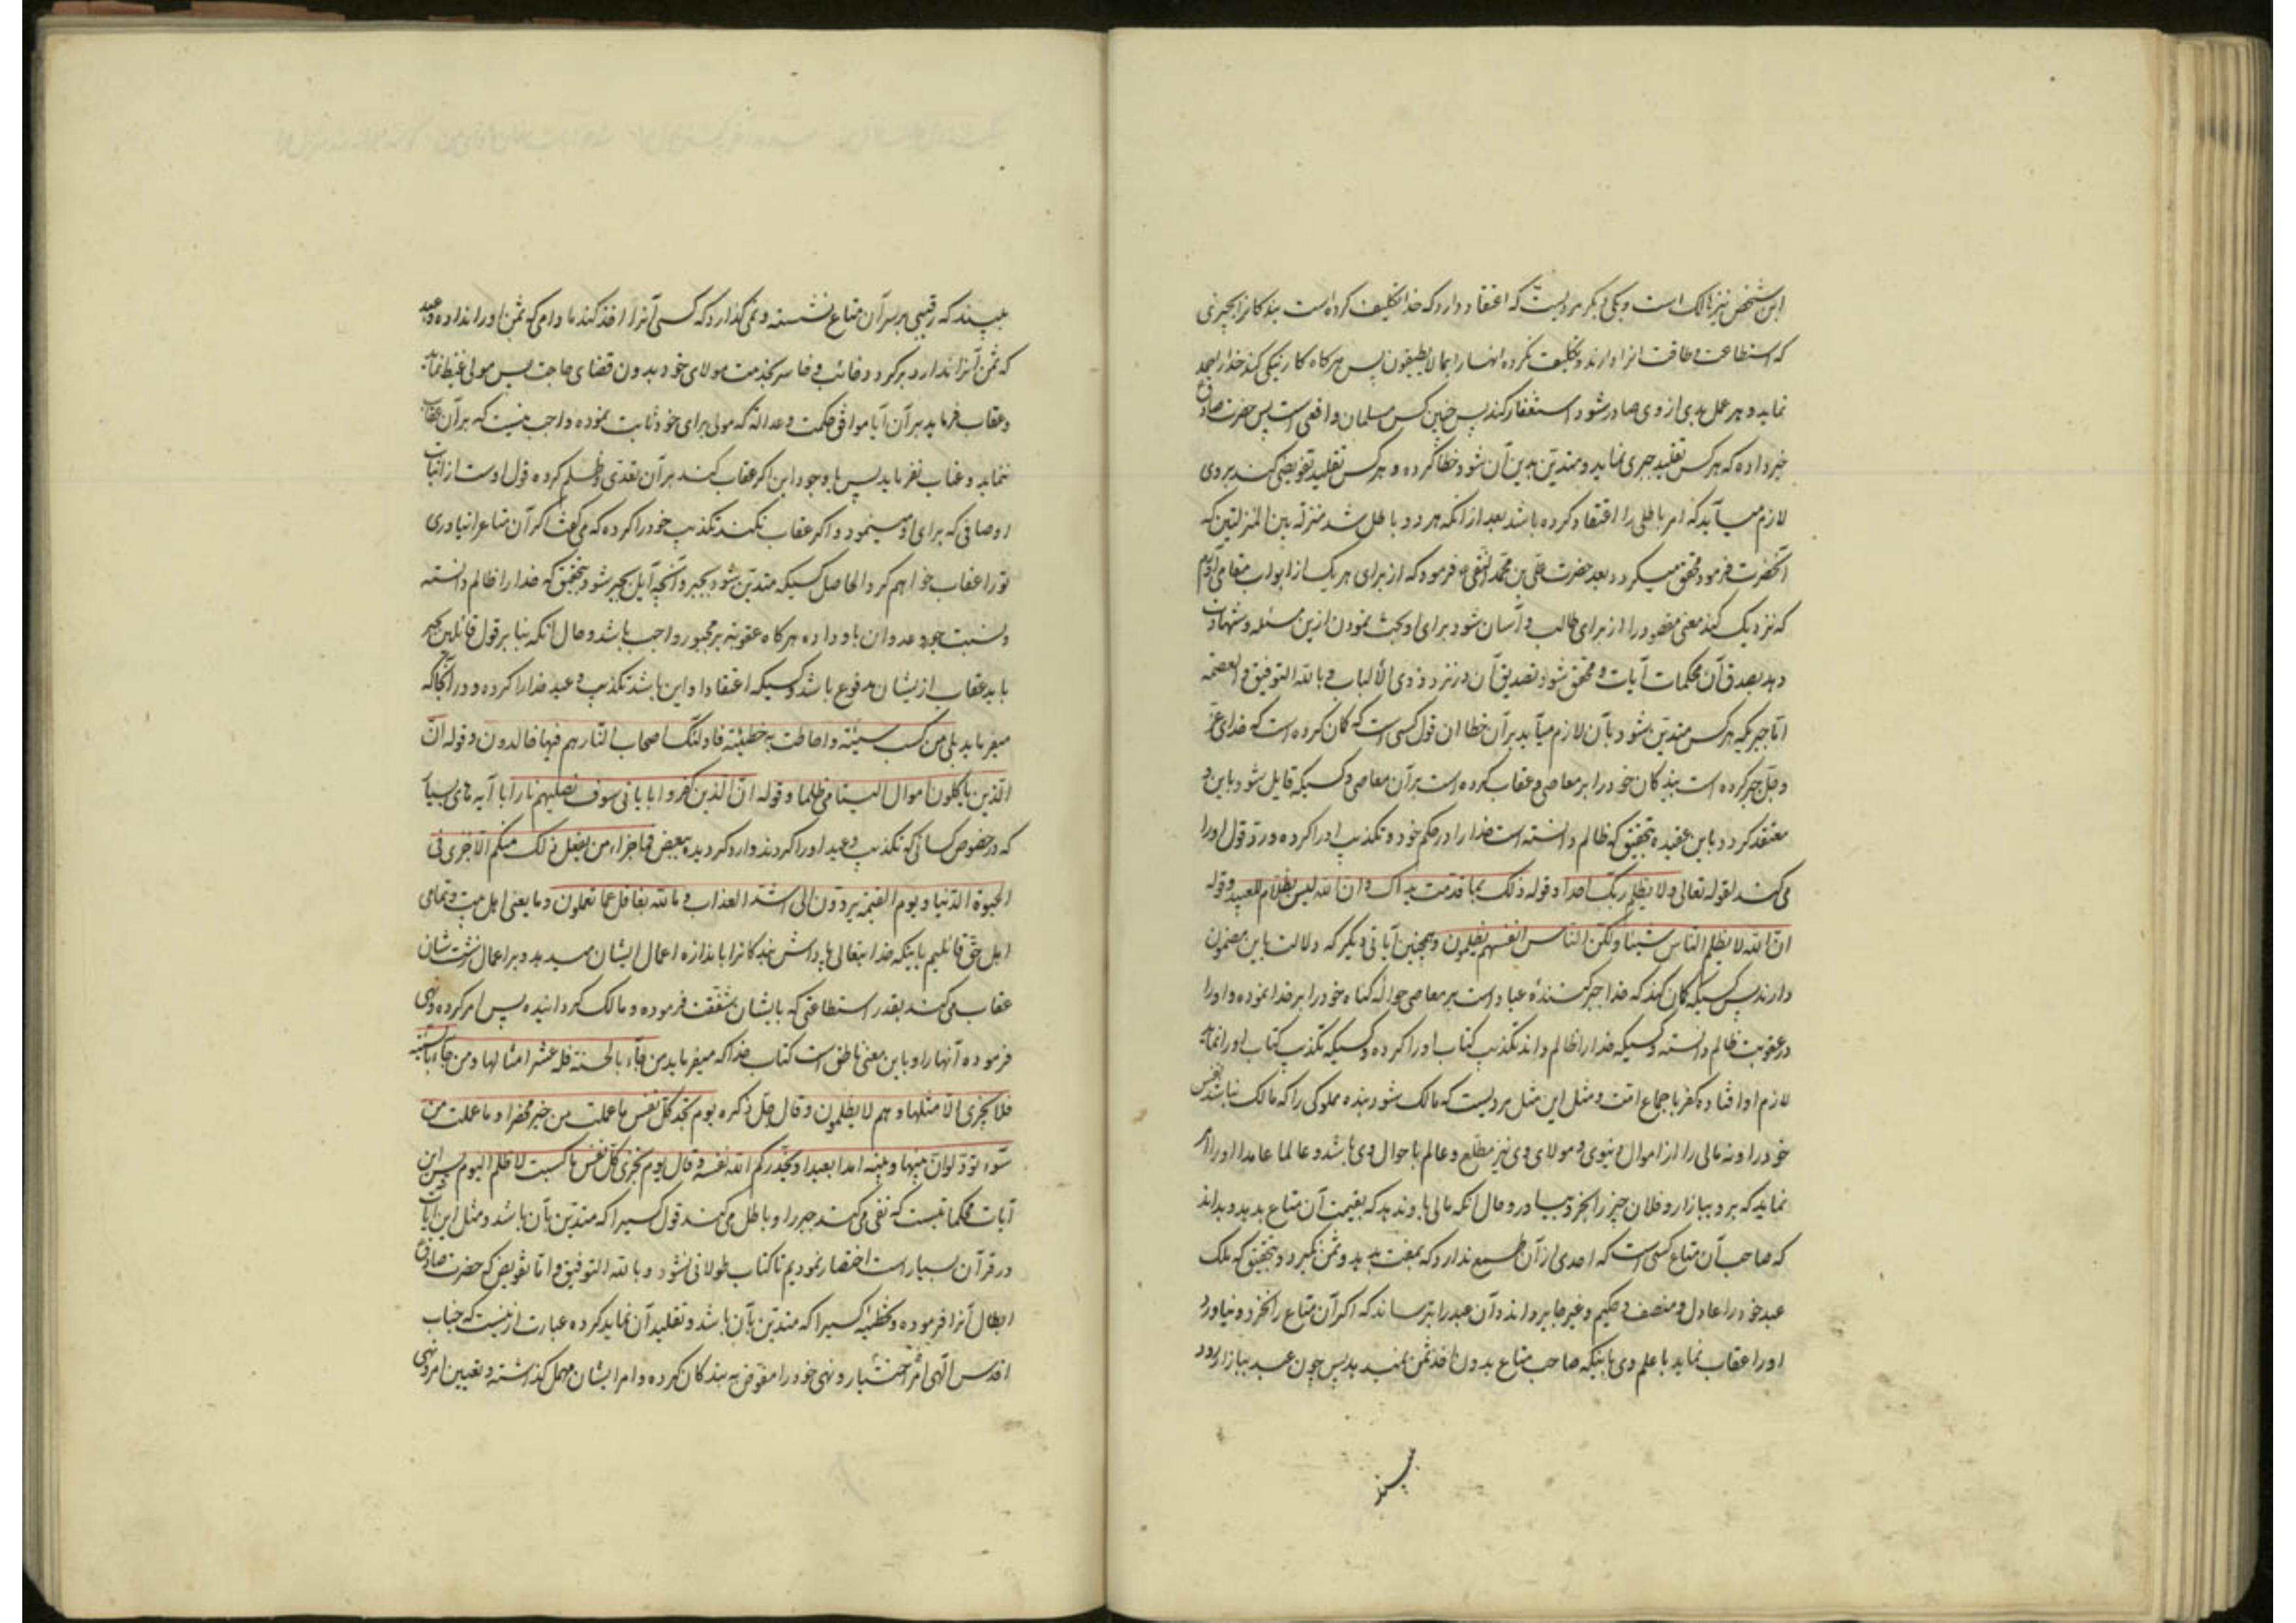 این شخص نیز هالک است و یکی دیگر مردیست که اعتقاد دارد که خدا تکلیف کرده است بندکانرا بچیزی
که استطاعت و طاقت انرا دارند و تکلیف نکرده انها را بما لا یطیقون پس هرکاه کار نیکی کند خدا را حمد
نماید و هر عمل بدی از وی صادر شود استغفار کند پس چنین کس مسلمان واقعی است پس حضرت صادق
خبر داده که هر کس تقلید جبری نماید و متدین بدین آن شود خطا کرده و هر کس تقلید تفویضی کند بر وی
لازم میآید که امر باطلی را اعتقاد کرده باشد بعد از آنکه هر دو باطل شد منزلة بین المنزلتین که
آنحضرت فرمود محقق میکردد بعد حضرت علی بن محمد النقی فرمود که از برای هر یک از ابواب مثلی آوریم
که نزدیک کند معنی مقصود را از برای طالب و آسان شود برای او بحث نمودن ازین مسئله و شهادت
دهد بصدق آن محکمات آیات و محقق شود تصدیق آن در نزد ذوی الألباب و بالله التوفیق و العصمة
اما جبر یکه هر کس متدین شود بآن لازم میآید بر آن خطا ان قول کسی است که کمان کرده است که خدای عز
و جل جبر کرده است بندکان خود را بر معاصی و عقاب کرده است بر آن معاصی و کسیکه قایل شود باین و
معتقد کردد باین عقیده بتحقیق که ظالم دانسته است خدا را در حکم خود و تکذیب او را کرده و رد قول او را
می کند لقوله تعالی و لا یظلم ربک احدا و قوله ذلک بما قدمت یداک و ان الله لیس بظلام للعبید و قوله
ان الله لا یظلم الناس شیئا و لکن الناس انفسهم یظلمون و همچنین آیاتی دیگر که دلالت باین مضمون
دارند پس کسیکه کمان کند که خدا جبر کنندۀ عباد است بر معاصی حوالۀ کناه خود را بر خدا نموده و او را
در عقوبت ظالم دانسته و کسیکه خدا را ظالم داند تکذیب کتاب او را کرده و کسیکه تکذیب کتاب او را نماید
لازم او افتاده کفر باجماع امت و مثل این مثل مردیست که مالک شود بنده مملوکی را که مالک نباشد نفس
خود را و نه مالی را از اموال دنیوی و مولای وی نیز مطلع و عالم باحوال وی باشد و عالما عامدا او را امر
نماید که برو ببازار و فلان چیز را بخر و بیا در و حال آنکه مالی باو ندهد که بقیمت آن متاع بدهد و بداند
که صاحب آن متاع کسی است که احدی از آن طمع ندارد که بمفت بدهد و ثمن نکیرد و بتحقیق که ملک
عبد خود را عادل و منصف و حکیم و غیر جابر داند و آن عبد را بترساند که اکر آن متاع را نخرد و نیاورد
او را عقاب نماید با علم وی باینکه صاحب متاع بدون اخذ ثمن نمیدهد پس چون عبد ببازار رود
ببیند
ببیند که رقیبی بر سر آن متاع نشسته و نمی کذارد که کسی آنرا اخذ کند مادامی که ثمن او را نداده و عبد
که ثمن آنرا ندارد برکردد و خائب و خاسر بخدمت مولای خود بدون قضای حاجت پس مولی غیظ نماید
و عقاب فرماید بر آن آیا موافق حکمت و عدالة که مولی برای خود ثابت نموده واجب نیست که بر آن عقاب
ننماید و عتاب نفرماید پس با وجود این اکر عقاب کند بر آن تعدی و ظلم کرده قول اوست از اثبات
اوصافی که برای او مینمود و اکر عقاب نکند تکذیب خود را کرده که می کفت اکر آن متاع را نیاوری
تو را عقاب خواهم کرد و الحاصل کسیکه متدین شود بجبر و آنچه آیل بجبر شود بتحقیق که خدا را ظالم دانسته
و نسبت جور و عدوان باو داده هرکاه عقوبة بر مجبور واجب باشد و حال آنکه بنا بر قول قائلین بجبر
باید عقاب ازیشان مرفوع باشد و کسیکه اعتقاد او این باشد تکذیب وعید خدا را کرده در آنجا که
میفرماید بلی من کسب سیئة و احاطت به خطیئته فاولئک اصحاب النار هم فیها خالدون و قوله ان
الذین یاکلون اموال الیتامی ظلما و قوله ان الذین کفروا بایاتی سوف نصلیهم نارا با آیه های بسیار
که در خصوص کسانی که تکذیب وعید او را کردند وارد کردیده ببعض فما جزاء من یفعل ذلک منکم الا خزی فی
الحیوة الدنیا و یوم القیمة یردون الی اشد العذاب و ما الله بغافل عما تعملون و ما یعنی اهل بیت و تمامی
اهل حق قائلیم باینکه خدایتعالی پاداش بندکانرا باندازه اعمال ایشان میدهد و بر اعمال زشت شان
عقاب می کند بقدر استطاعتی که بایشان شفقت فرموده و مالک کردانیده پس امر کرده و نهی
فرموده آنها را و باین معنی ناطق است کتاب خدا که میفرماید من جآء بالحسنة فله عشر امثالها و من جآء بالسیئة
فلا یجزی الا مثلها و هم لا یظلمون و قال جل ذکره یوم تجد کل نفس ما عملت من خیر محضرا و ما عملت من
سوء تود لو ان بینها و بینه امدا بعیدا و یحذرکم الله نفسه و قال یوم تجزی کل نفس ما کسبت لا ظلم الیوم پس این
آیات محکماتیست که نفی می کند جبر را و باطل می کند قول کسیرا که متدین بآن باشد و مثل این آیات
در قرآن بسیار است اختصار نمودیم تا کتاب طولانی نشود و بالله التوفیق و اما تفویض که حضرت صادق
ابطال آنرا فرموده و تخطئه کسیرا که متدین بآن باشد و تقلید آن نماید کرده عبارت ازینست که جناب
اقدس الهی امر اختیار و نهی خود را مفوض به بندکان کرده و امر ایشان مهمل کذاشته و تعیین امر و نهی